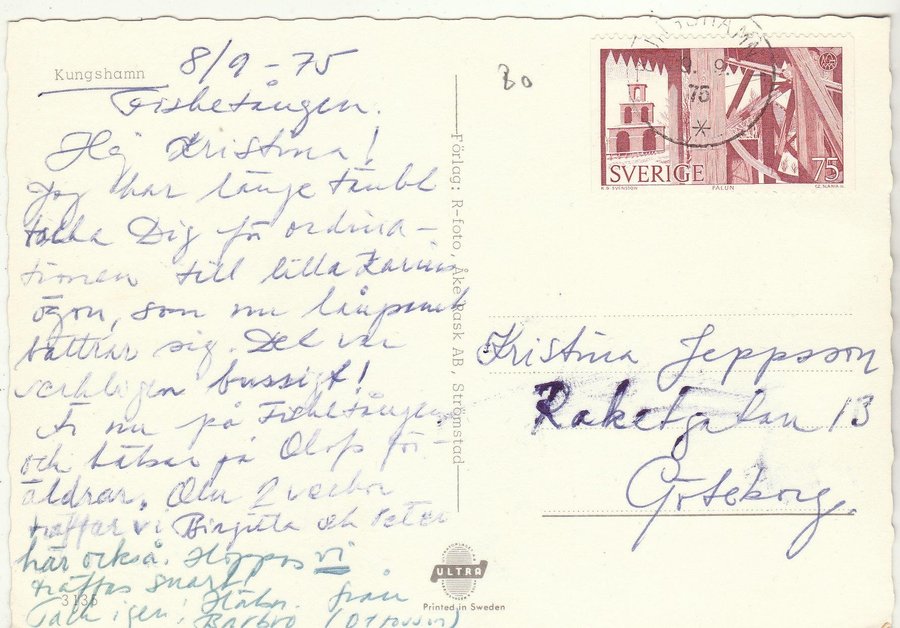 Kungshamn
8/9 - 75
Fisketången.
Hej Kristina!
Jag har länge tänkt
tacka Dig för ordina-
tionen till lilla Karins
ögon, som nu långsamt
bättrar sig. Det var
verkligen bussigt!
Är nu på Fisketången
och hälsar på Olofs för-
äldrar. Om 2 veckor
träffar vi Birgitta och Peter
här också. Hoppas vi
träffas snart!
Tack igen! Hälsn. från
Barbro
3135
Förlag: R-foto, Åke Rask AB, Strömstad
80
9. 9.
75
SVERIGE
75
R. G. SVENSSON
FALUN
CZ. SLANIA SC.
Kristina Jeppsson
Raketgatan 13
Göteborg
ULTRA
Printed in Sweden